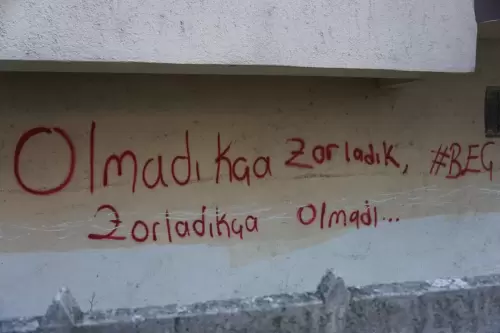 Olmadıkça zorladık, #BEG
Zorladıkça Olmadı...